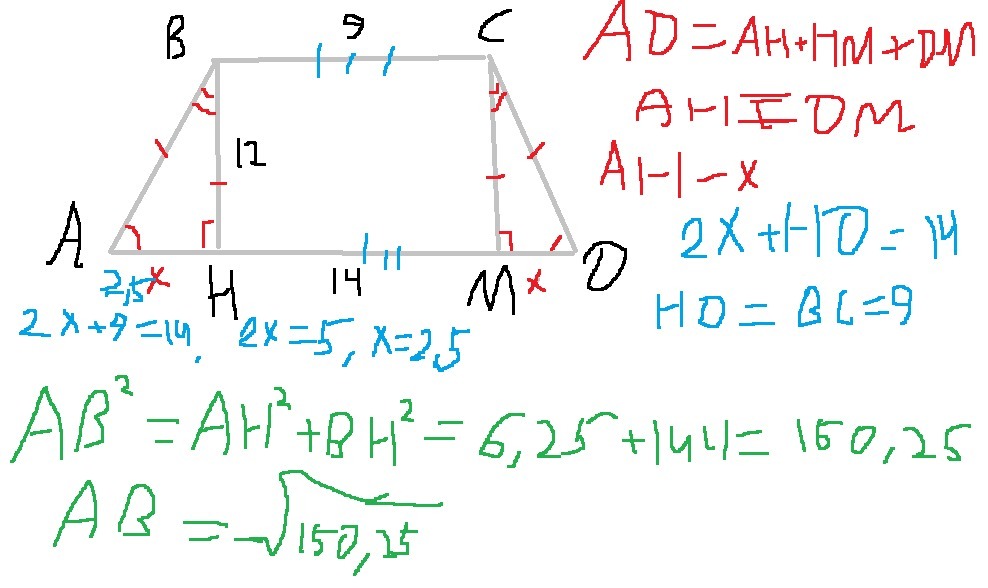 B 9 C
12
A 2,5 x H 14 M x D
AD = AH + HM + DM
AH = DM
AH - x
2x + HD = 14
HD = BC = 9
2x + 9 = 14, 2x = 5, x = 2,5
AB² = AH² + BH² = 6,25 + 144 = 150,25
AB = √150,25